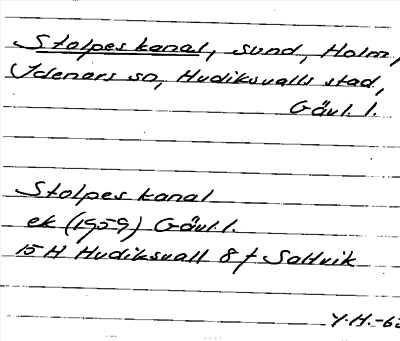 Stolpes kanal, sund, Holm,
Idenors sn, Hudiksvalls stad,
Gävl. l.
Stolpes kanal
ek (1959) Gävl. l.
15 H Hudiksvall 8 f Saltvik
Y.H. -62